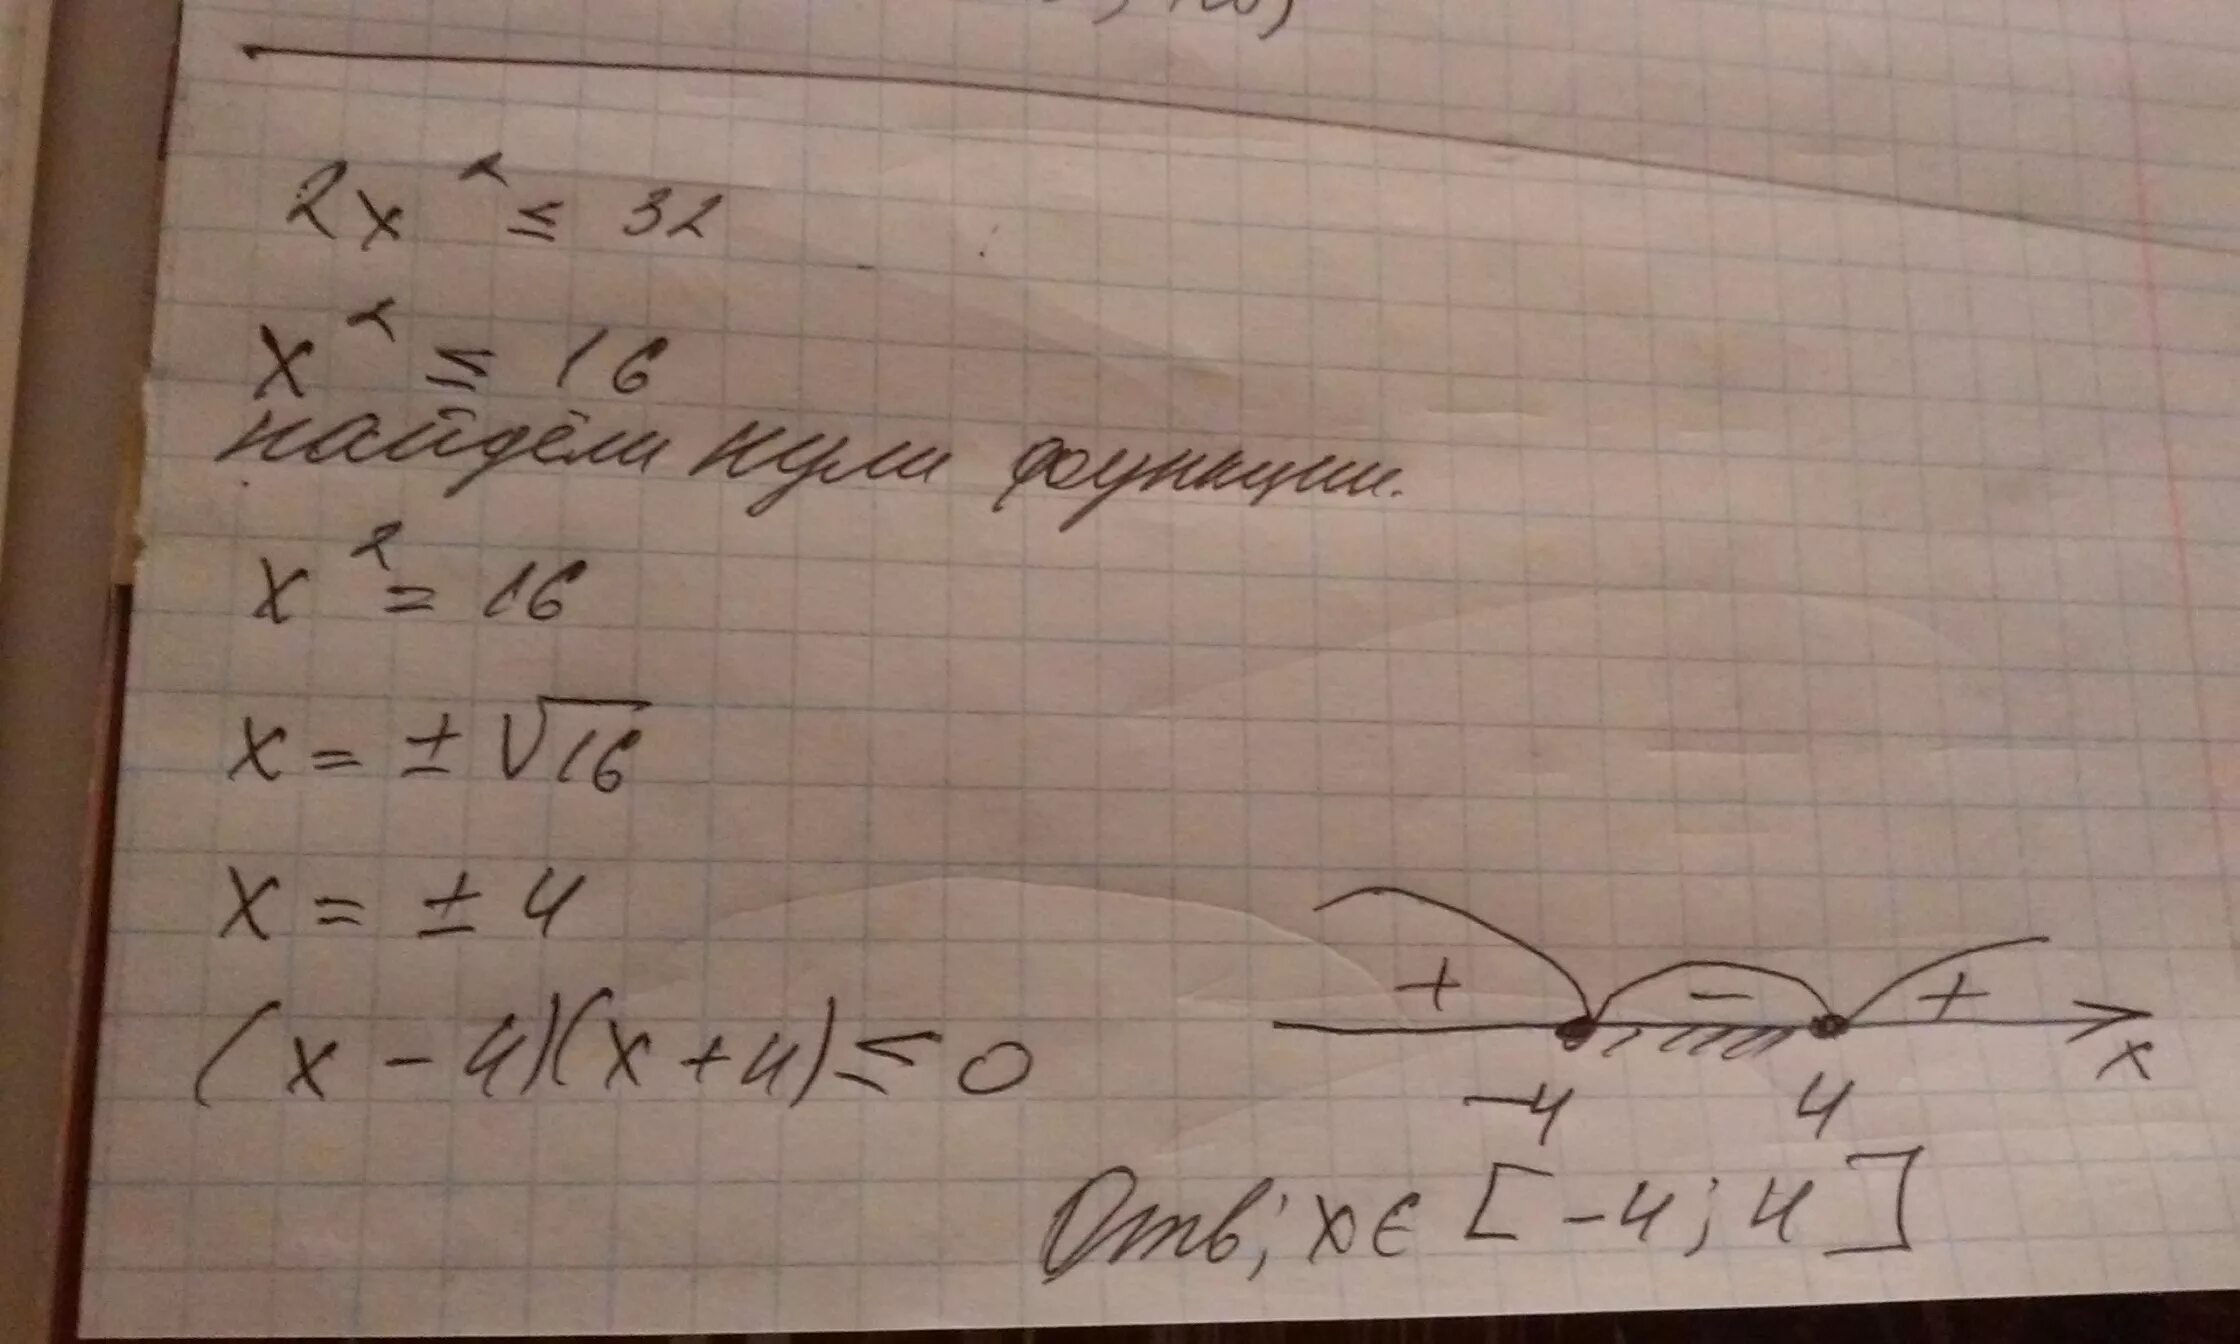 2x² ≤ 32
x² ≤ 16
найдём нули функции.
x² = 16
x = ± √16
x = ± 4
(x - 4)(x + 4) ≤ 0
+ - +
-4 4 x
Отв; x ∈ [-4; 4]